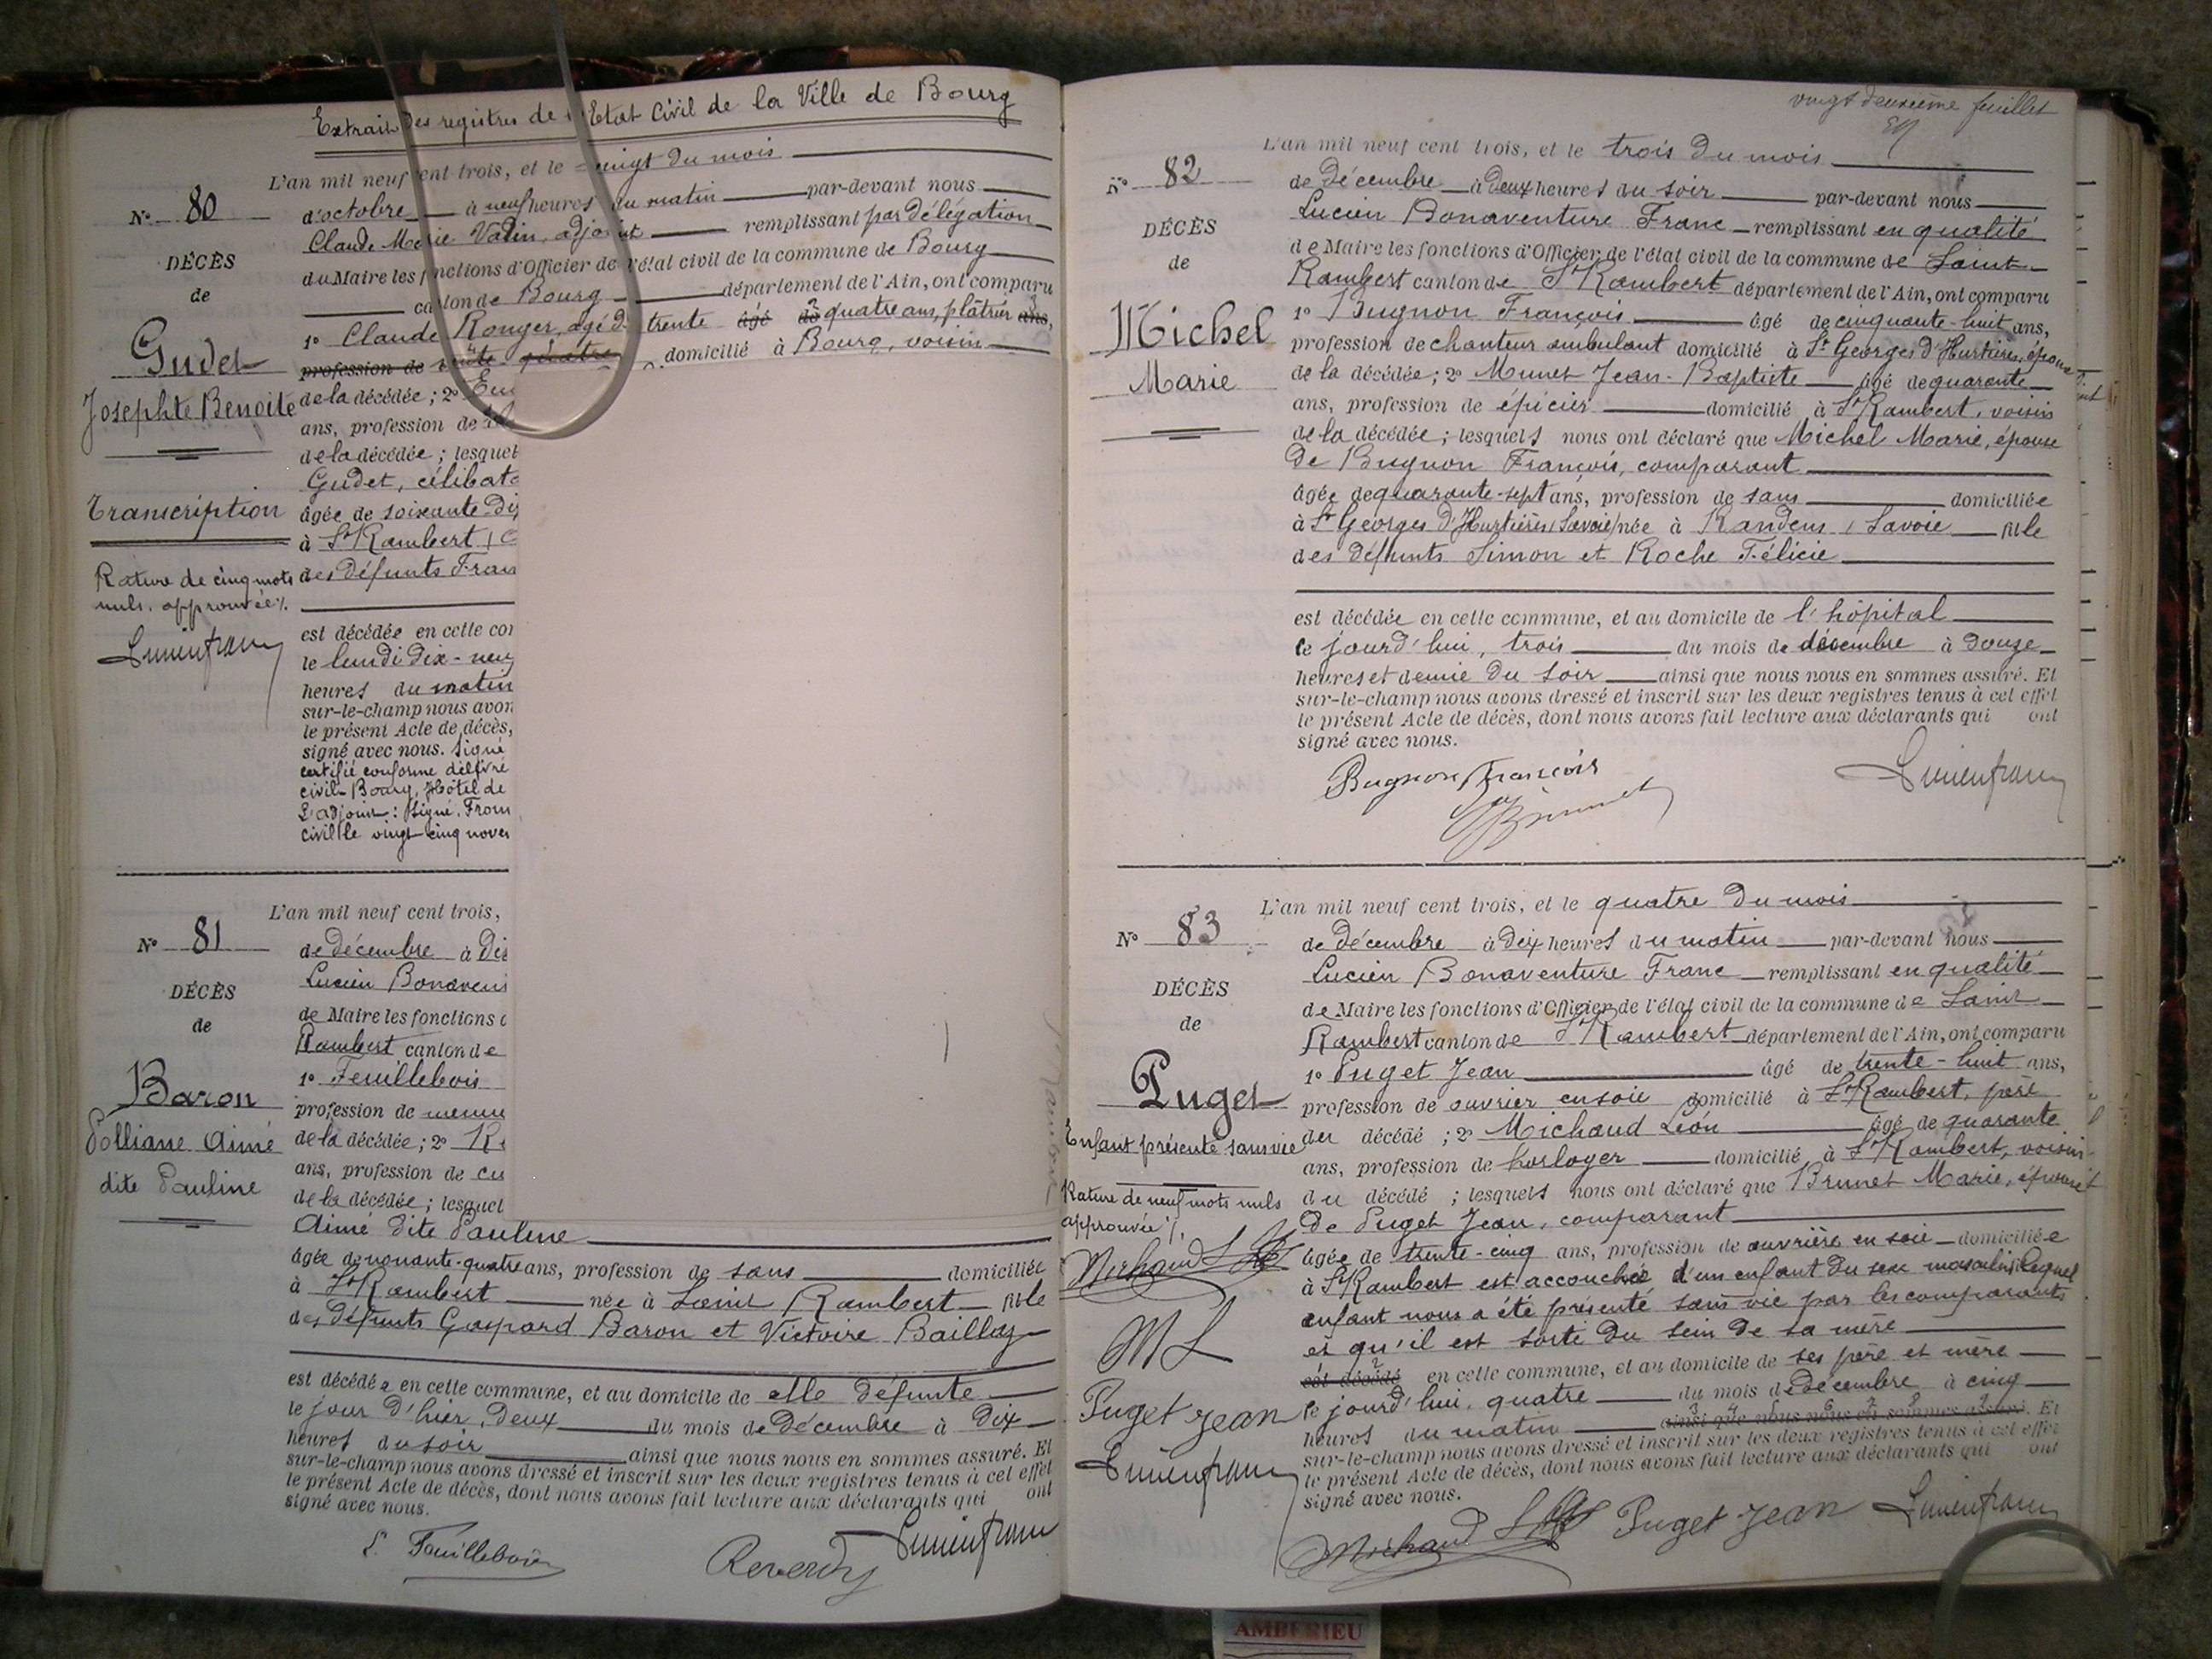 Extrait des registres de l'Etat Civil de la Ville de Bourg
L'an mil neuf cent trois, et le vingt du mois
d'octobre à neuf heures du matin par-devant nous
Claude Marie Vadin, adjoint remplissant par délégation
du Maire les fonctions d'Officier de l'état civil de la commune de Bourg
canton de Bourg département de l'Ain, ont comparu
1º Claude Ronger, agé de trente âgé de quatre ans, plâtrier ans,
profession de domicilié à Bourg, voisin
de la décédée ; 2º
ans, profession de
de la décédée ; lesquel
Gudet, célibata
âgée de soixante dix
à St Rambert
des défunts Fran
est décédée en cette co
le lundi dix-neuf
heures du matin
sur-le-champ nous avon
le présent Acte de décès,
signé avec nous. Signé
certifié conforme délivré
civil. Bourg, Hôtel de
L'adjoint : Signé. From
civil le vingt-cinq nove
Nº 80
DÉCÈS
de
Gudet
Josephte Benoite
Transcription
Rature de cinq mots
nuls. approuvée ./.
Lucien franc
Nº 81
DÉCÈS
de
Baron
Polliane Aimé
dite Pauline
L'an mil neuf cent trois,
de décembre à dix
Lucien Bonaven
de Maire les fonctions
Rambert canton de
1º Feuillebois
profession de menu
de la décédée ; 2º
ans, profession de cu
de la décédée ; lesquel
Aimé dite Pauline
âgée de nonante-quatre ans, profession de sans domiciliée
à St Rambert née à Saint Rambert fille
des défunts Gaspard Baron et Victoire Baillay
est décédée en cette commune, et au domicile de elle défunte
le jour d'hier, deux du mois de décembre à dix
heures du soir ainsi que nous nous en sommes assuré. Et
sur-le-champ nous avons dressé et inscrit sur les deux registres tenus à cet effet
le présent Acte de décès, dont nous avons fait lecture aux déclarants qui ont
signé avec nous.
Feuillebois
Reverdy
Lucien franc
vingt deuxième feuillet
Nº 82
DÉCÈS
de
Michel
Marie
L'an mil neuf cent trois, et le trois du mois
de décembre à deux heures du soir par-devant nous
Lucien Bonaventure Franc remplissant en qualité
de Maire les fonctions d'Officier de l'état civil de la commune de Saint
Rambert canton de St Rambert département de l'Ain, ont comparu
1º Bugnon François âgé de cinquante-huit ans,
profession de chanteur ambulant domicilié à St Georges d'Hurtières, époux
de la décédée ; 2º Munet Jean-Baptiste âgé de quarante
ans, profession de épicier domicilié à St Rambert, voisin
de la décédée ; lesquels nous ont déclaré que Michel Marie, épouse
de Bugnon François, comparant
âgée de quarante-sept ans, profession de sans domiciliée
à St Georges d'Hurtières (Savoie) née à Randens (Savoie fille
des défunts Simon et Roche Félicie
est décédée en cette commune, et au domicile de l'hôpital
le jourd'hui, trois du mois de décembre à douze
heures et demie du soir ainsi que nous nous en sommes assuré. Et
sur-le-champ nous avons dressé et inscrit sur les deux registres tenus à cet effet
le présent Acte de décès, dont nous avons fait lecture aux déclarants qui ont
signé avec nous.
Bugnon François
Lucien franc
Nº 83
DÉCÈS
de
Puget
Enfant présenté sans vie
Rature de neuf mots nuls
approuvée ./.
Michaud
ML
Puget Jean
Lucien franc
L'an mil neuf cent trois, et le quatre du mois
de décembre à dix heures du matin par-devant nous
Lucien Bonaventure Franc remplissant en qualité
de Maire les fonctions d'Officier de l'état civil de la commune de Saint
Rambert canton de St Rambert département de l'Ain, ont comparu
1º Puget Jean âgé de trente-huit ans,
profession de ouvrier en soie domicilié à St Rambert, père
du décédé ; 2º Michaud Léon âgé de quarante
ans, profession de horloger domicilié à St Rambert, voisin
du décédé ; lesquels nous ont déclaré que Brunet Marie, épouse
de Puget Jean, comparant
âgée de trente-cinq ans, profession de ouvrière en soie domiciliée
à St Rambert est accouchée d'un enfant du sexe masculin, lequel
enfant nous a été présenté sans vie par les comparants
et qu'il est sorti du sein de sa mère
est décédé en cette commune, et au domicile de ses père et mère
le jourd'hui, quatre du mois de décembre à cinq
heures du matin ainsi que nous nous en sommes assuré. Et
sur-le-champ nous avons dressé et inscrit sur les deux registres tenus à cet effet
le présent Acte de décès, dont nous avons fait lecture aux déclarants qui ont
signé avec nous.
Michaud Puget Jean Lucien franc
AMBERIEU